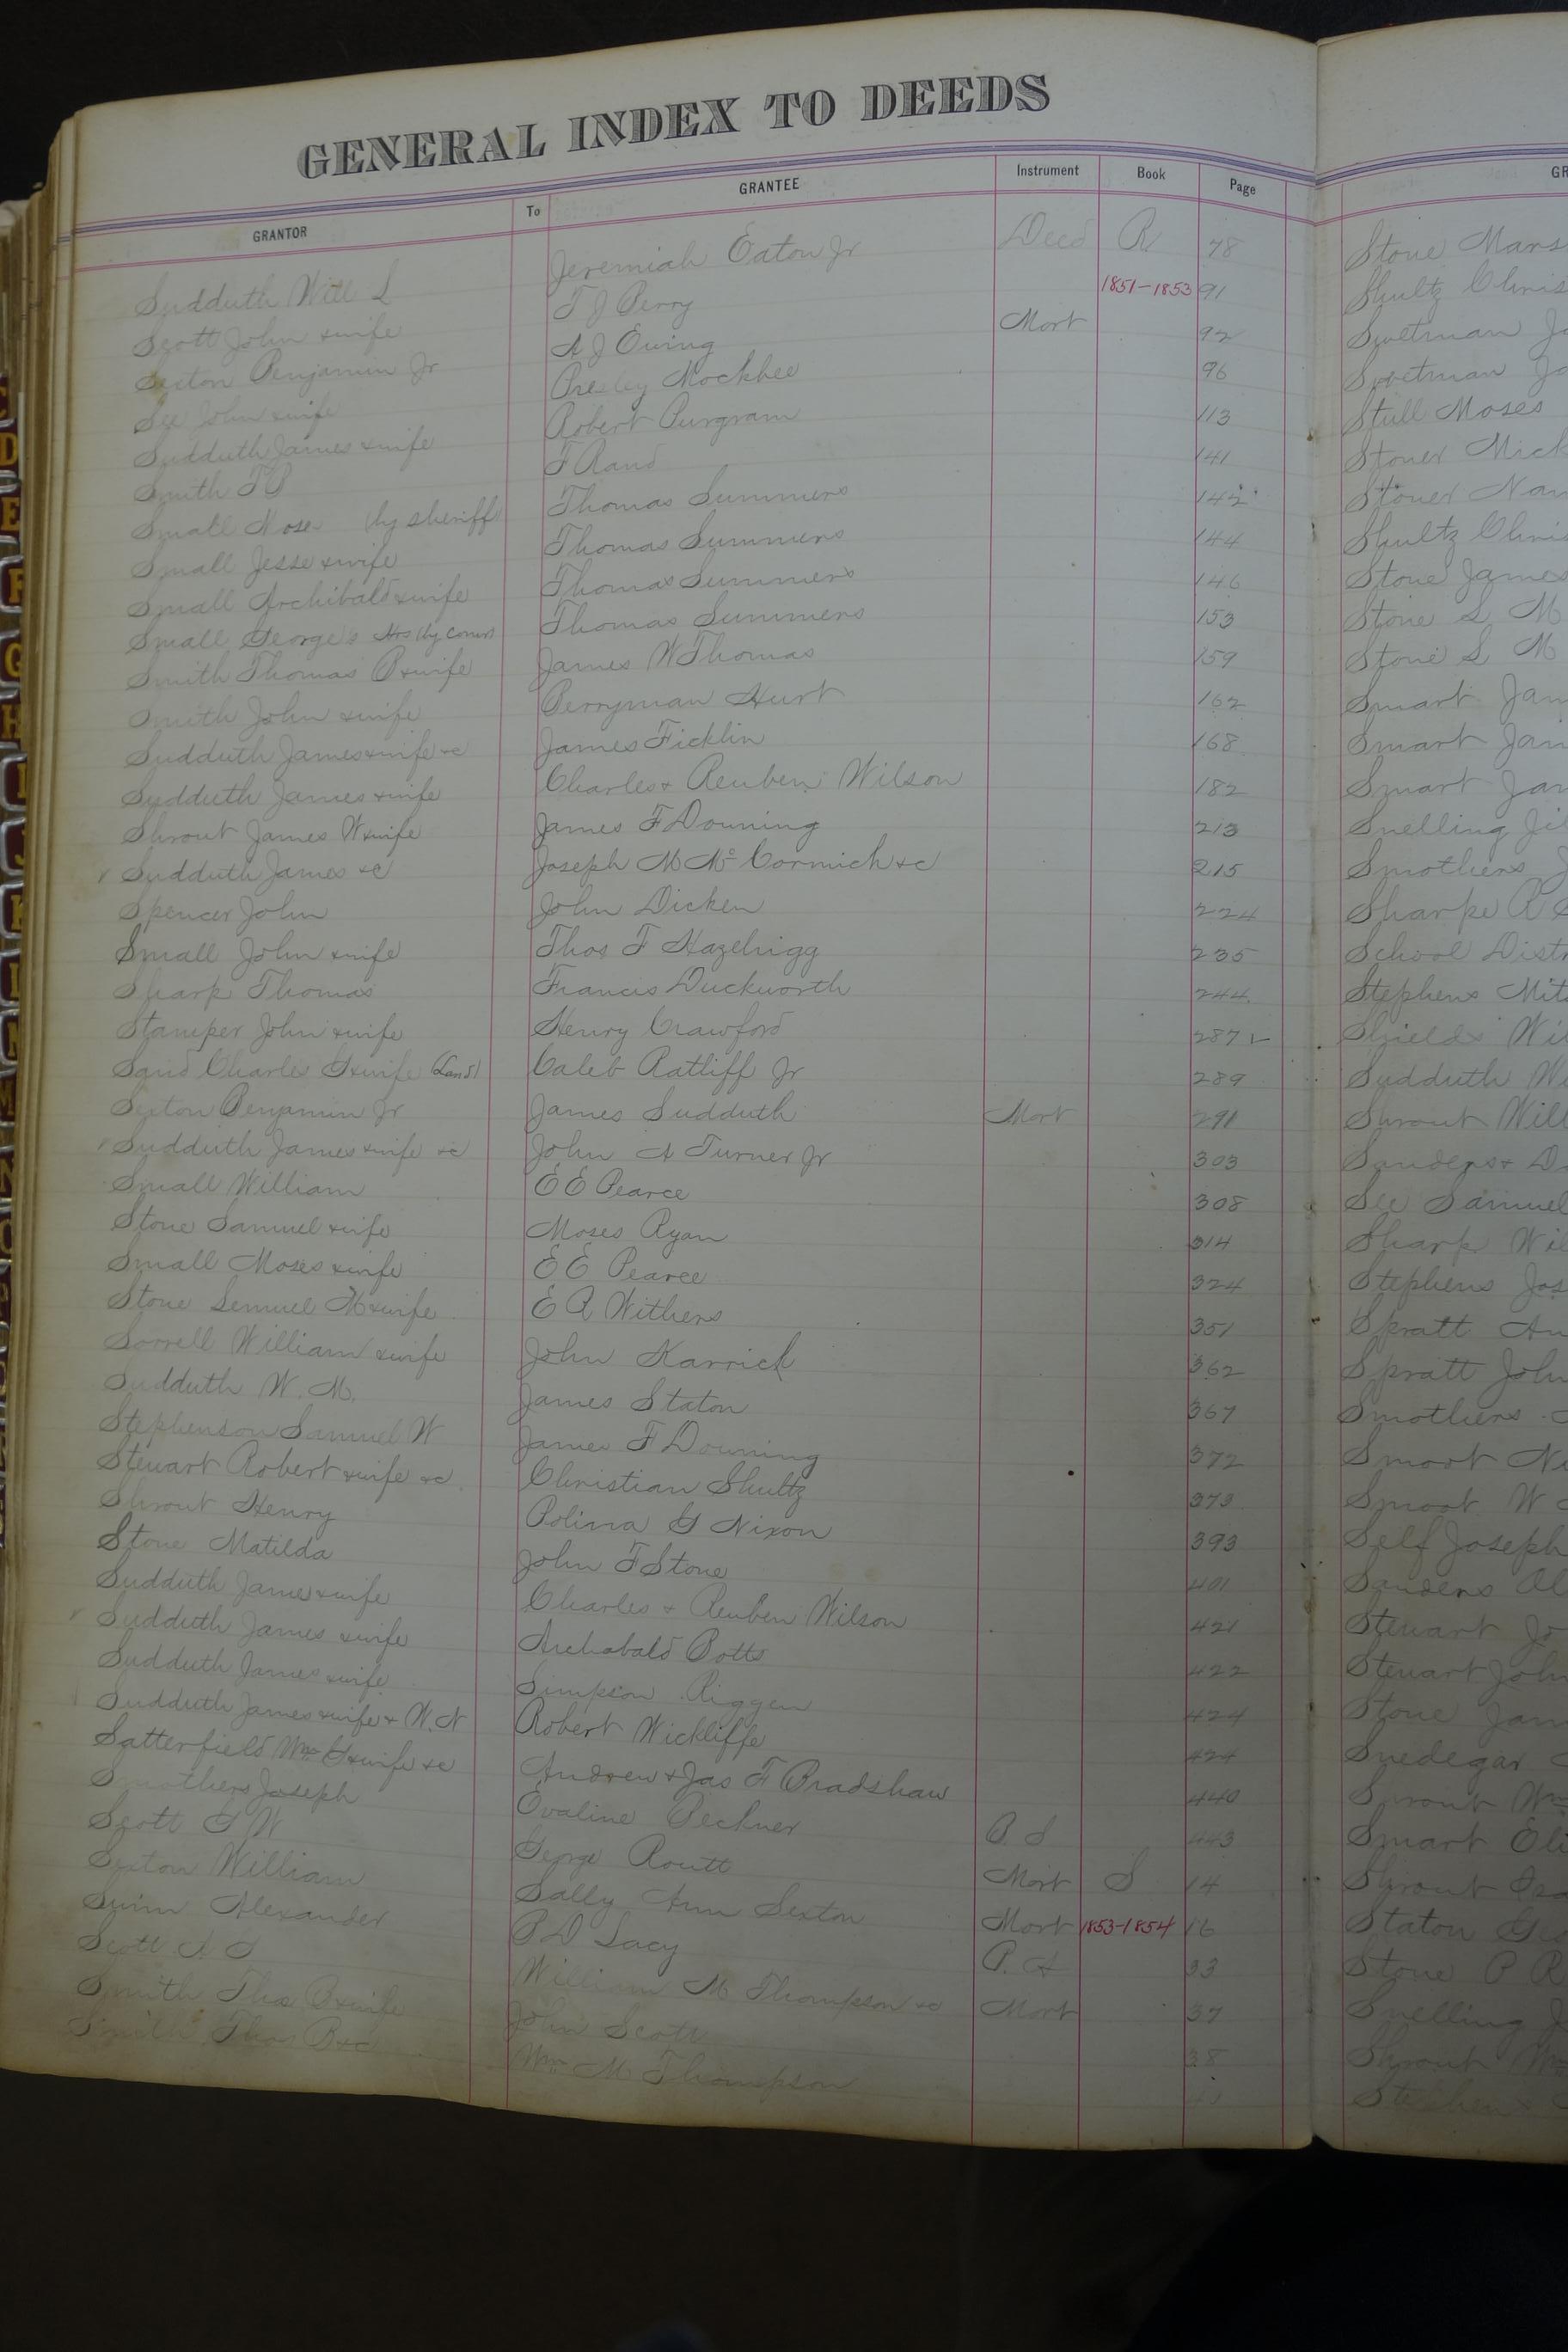 GENERAL INDEX TO DEEDS
GRANTOR To GRANTEE Instrument Book Page
Sudduth Will L Jeremiah Eaton Jr Deed R 78
Scott John &wife T J Perry 1851-1853 91
Sexton Benjamin Jr A J Ewing Mort 92
See John &wife Presley Mockbee 96
Sudduth James &wife Robert Purgram 113
Smith T B F Rand 141
Small Mose (by sheriff) Thomas Summers 142
Small Jesse &wife Thomas Summers 144
Small Archibald &wife Thomas Summers 146
Small George's Hrs (by comrs) Thomas Summers 153
Smith Thomas B &wife James W Thomas 159
Smith John &wife Berryman Hurt 162
Sudduth James &wife &c James Ficklin 168
Sudduth James &wife Charles & Reuben Wilson 182
Shrout James W &wife James F Downing 213
Sudduth James &c Joseph M McCormick &c 215
Spencer John John Dicken 224
Small John &wife Thos F Hazelrigg 235
Sharp Thomas Francis Duckworth 244
Stamper John &wife Henry Crawford 287
Sand Charles G &wife (Land) Caleb Ratliff Jr 289
Sexton Benjamin Jr James Sudduth Mort 291
Sudduth James &wife &c John A Turner Jr 303
Small William E E Pearce 308
Stone Samuel &wife Moses Ryan 314
Small Moses &wife E E Pearce 324
Stone Semuel M &wife E R Withers 351
Sorrell William &wife John Karrick 362
Sudduth W. M. James Staton 367
Stephenson Samuel W James F Downing 372
Stewart Robert &wife &c Christian Shultz 373
Shrout Henry Polina G Nixon 393
Stone Matilda John F Stone 401
Sudduth James &wife Charles & Reuben Wilson 421
Sudduth James &wife Archabald Botts 422
Sudduth James &wife Simpson Riggen 424
Sudduth James &wife & W. N Robert Wickliffe 424
Satterfield Wm G &wife &c Andrew & Jas F Bradshaw 440
Smothers Joseph Evaline Peckner B S 443
Scott G W George Routt Mort S 14
Sexton William Sally Ann Sexton Mort 1853-1854 16
Swim Alexander B D Lacy P. A 33
Scott William M Thompson &c Mort 37
Smith Thos B &wife John Scott 38
Smith Thos B &c Wm M Thompson
GR
Stone Mars
Shultz Chris
Swetman Ja
Swetman Ja
Stull Moses
Stoner Mick
Stoner Nan
Shultz Chris
Stone James
Stone L M
Stone L M
Smart Jam
Smart Jam
Smart Jam
Snelling Ji
Smothers J
Sharpe R S
School Distr
Stephens Mit
Shields Wi
Sudduth W
Shrout Will
Sanders & D
See Samuel
Sharp Wil
Stephens Jos
Spratt An
Spratt John
Smothers
Smoot N
Smoot W
Self Joseph
Sanders Al
Stewart Jo
Stewart John
Stone Jam
Snedegar
Shrout Wm
Smart Eli
Shrout Isa
Staton Geo
Stone P R
Snelling J
Shrout Wm
Stephens